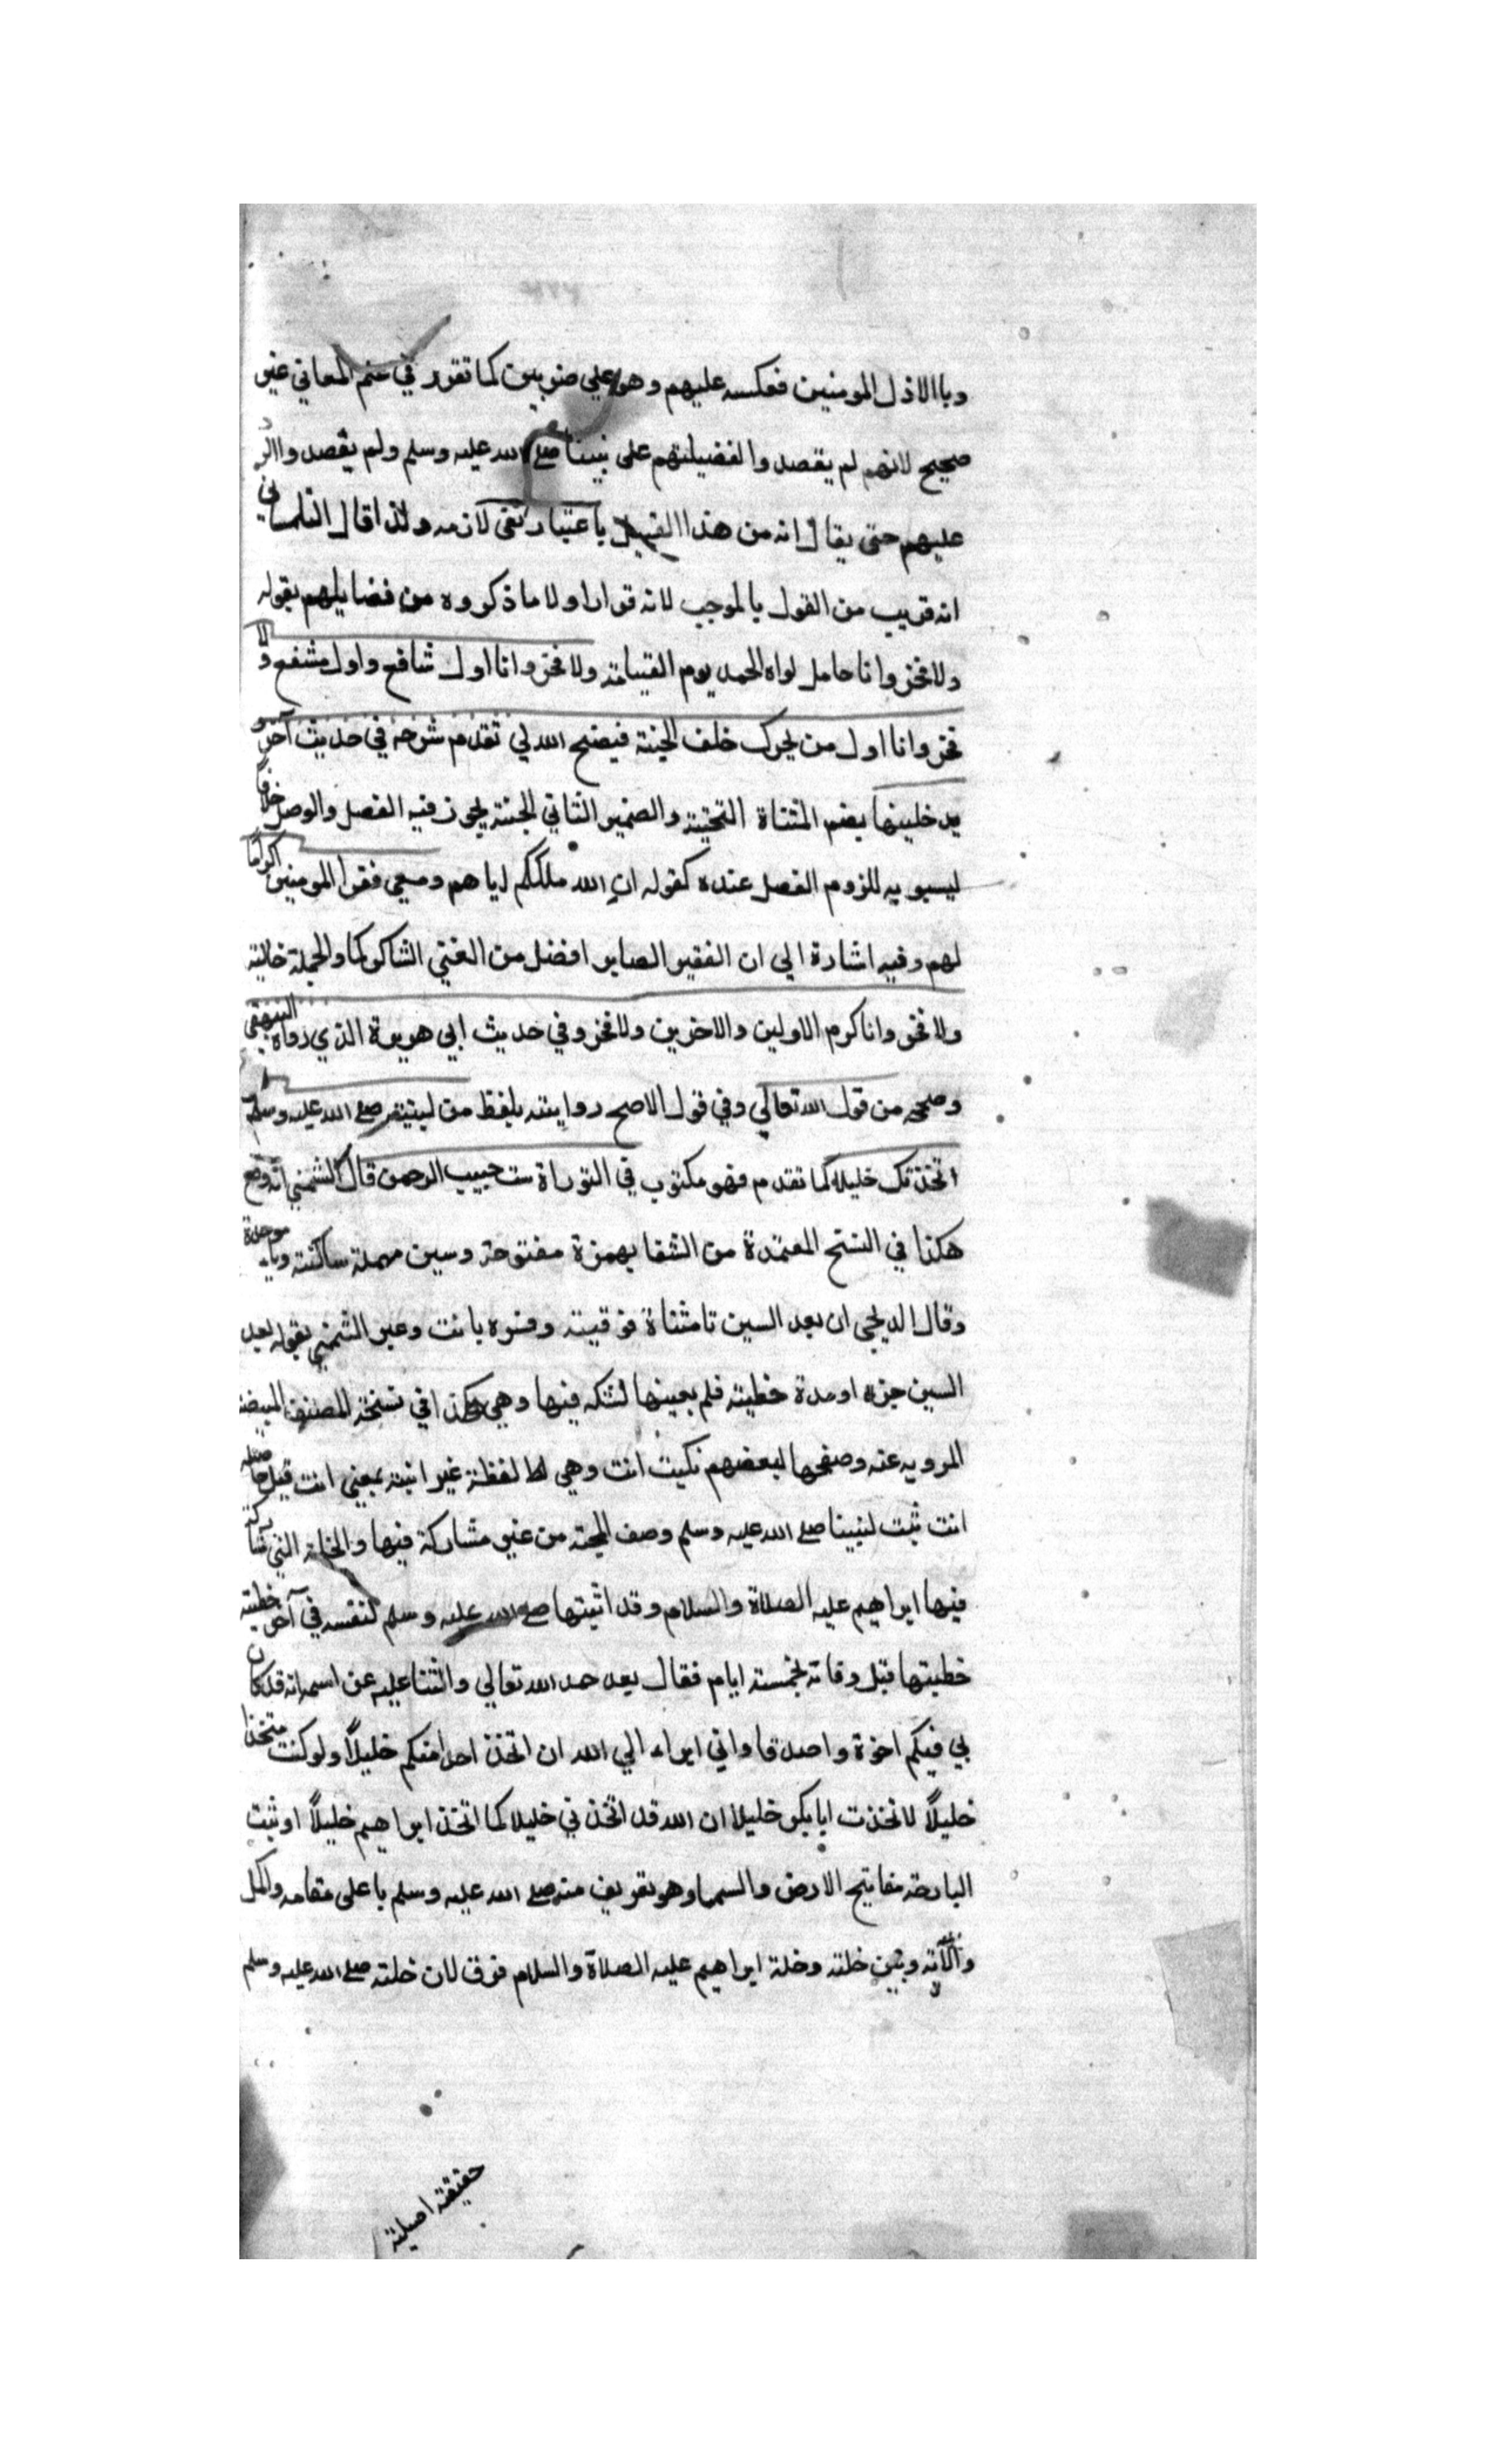 وباالاذل المومنين فعكسه عليهم وهو علي ضربين كما تقرر في علم المعاني غير
صحيح لانهم لم يقصدوا لفضيلتهم على نبينا صلى الله عليه وسلم ولم يقصدوا الر
عليهم حتى يقال انه من هذا القبيل باعتبار نفى لازمه ولذا قال التلمساني
انه قريب من القول بالموجب لانه قرر اولا ما ذكروه من فضايلهم بقوله
ولا فخر وانا حامل لواء الحمد يوم القيامة ولا فخر وانا اول شافع واول مشفع ولا
فخر وانا اول من يحرك خلف الجنة فيفتح الله لي تقدم شرحه في حديث آخر و
يدخلينها بضم المثناة التحتية والضمير الثاني للجنة يجوز فيه الفصل والوصل خلافا
ليسبويه للزوم الفصل عنده كقوله ان الله ملككم اياهم ومعي فقرا المومنين اكراما
لهم وفيه اشارة الي ان الفقير الصابر افضل من الغني الشاكر كما والجملة حالية
ولا فخر وانا كرم الاولين والاخرين ولا فخر وفي حديث ابي هريرة الذي رواه البيهقي
وصححه من قول الله تعالي وفي قول الاصح روايته بلفظ من لبيتهر صلى الله عليه وسلم
اتخذتك خليلا كما تقدم فهو مكتوب في التوراة ست حبيب الرحمن قال الشمني انه وقع
هكذا في النسخ المعتمدة من الشفا بهمزة مفتوحة وسين مهملة ساكنة وباء موحدة
وقال الديلجي ان بعد السين تا مثناة فوقية وفسره بانت وعبر الشمني بقوله بعد
السين جزه او مدة خطية فلم يعينها لشكه فيها وهي هكذا في نسخة المصنف المبيضة
المرويه عنه وصفحها لبعضهم نكيت انت وهي لط لفظة غير انية بمعني انت قيل
انت ثبت لنبينا صلى الله عليه وسلم وصف المحبة من غير مشاركة فيها والخلة التي شاركه
فيها ابراهيم عليه الصلاة والسلام وقد اثبتها صلى الله عليه وسلم لنفسه في آخر خطبة
خطبتها قبل وفاته بخمسة ايام فقال بعد حمد الله تعالي والثنا عليه عن اسمه انه قد كان
لي فيكم اخوة واصدقا واني ابراء الي الله ان اتخذ احدا منكم خليلاً ولو كنت متخذا
خليلاً لاتخذت ابا بكر خليلا ان الله قد اتخذني خليلا كما اتخذ ابراهيم خليلاً اوتيت
البارحة مفاتيح الارض والسما وهو تعريف منه صلى الله عليه وسلم با على مقامه واكمل
وبين خلته وخلة ابراهيم عليه الصلاة والسلام فرق لان خلته صلى الله عليه وسلم
حقيقة اصلية